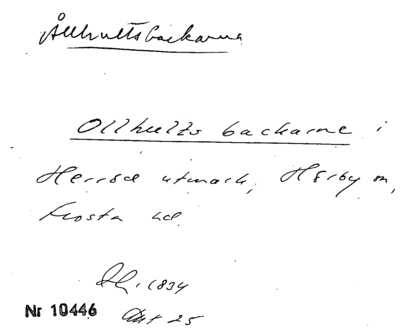 Ållhultsbackarna
Ollhults backarne i
Herrsd utmark, Hörby sn,
Frosta hd
1834
Nr 10446 Akt 25